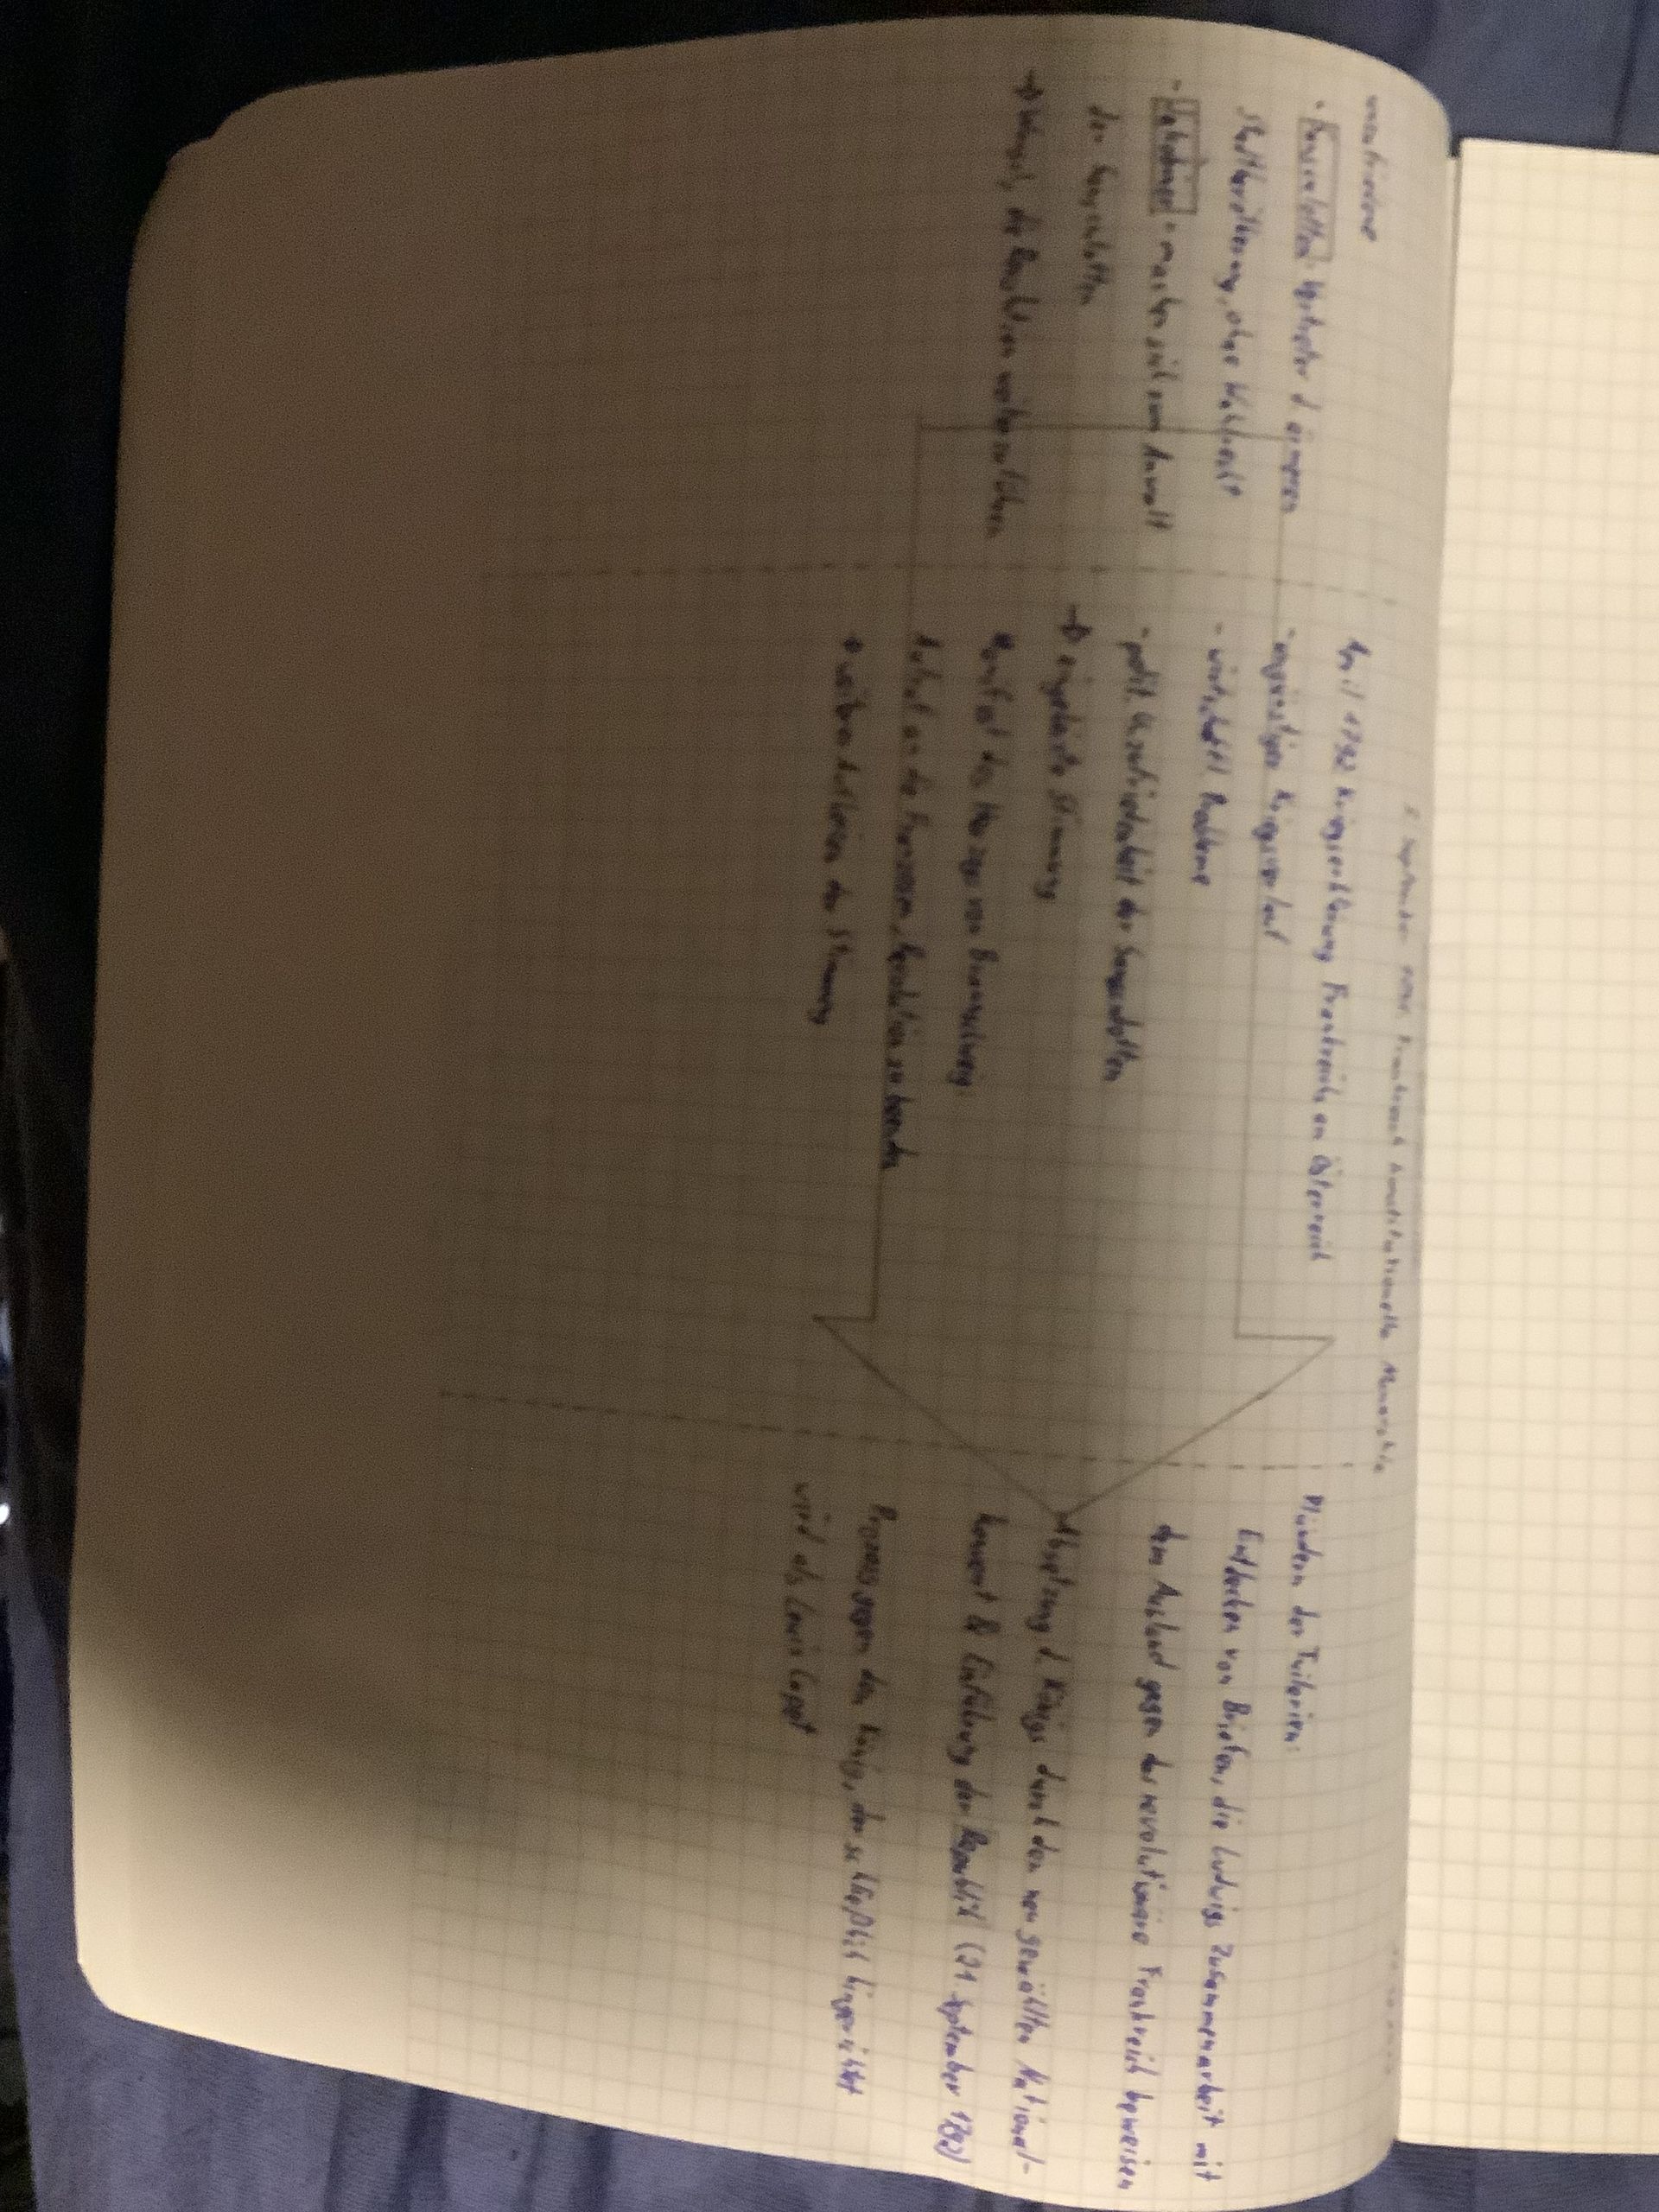 September Frankreich konstitutionelle Monarchie
unzufriedene
- Sansculotten: Vertreter d. ärmeren
Stadtbevölkerung, ohne Wahlrecht
- Jakobiner: machen sich zum Anwalt
der Sansculotten
→ Wunsch, die Revolution weiterzuführen
April 1792 Kriegserklärung Frankreichs an Österreich
- ungünstiger Kriegsverlauf
- wirtschaftl. Probleme
- polit. Unzufriedenheit der Sansculotten
→ Stimmung
Manifest des Herzogs von Braunschweig:
an die Franzosen, Revolution zu beenden
→ weiteres Aufheizen der Stimmung
Plündern der Tuilerien:
Entdecken von Briefen, die Ludwigs Zusammenarbeit mit
dem Ausland gegen das revolutionäre Frankreich beweisen
Absetzung d. Königs durch den neu gewählten National-
konvent & Einführung der Republik (21. September 1792)
Prozess gegen den König, der schließlich hingerichtet
wird als Louis Capet